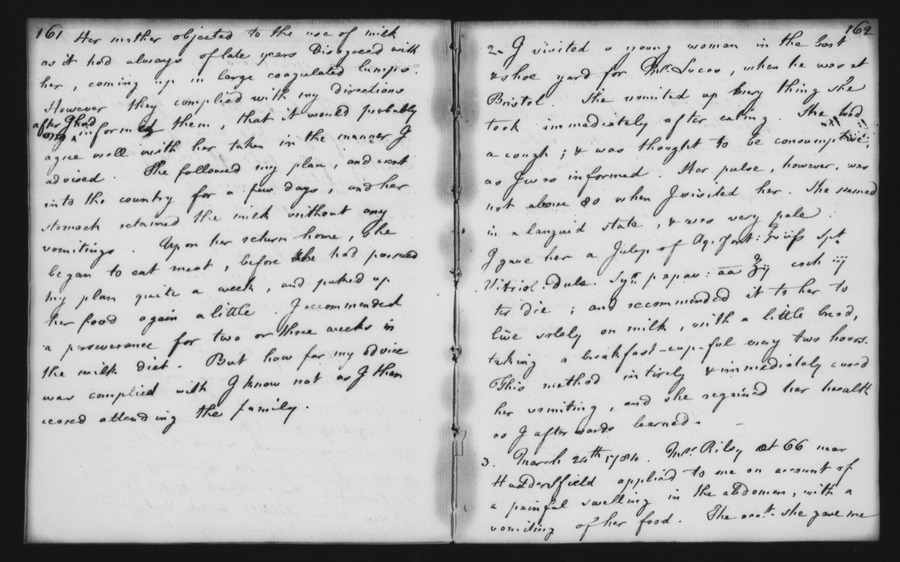 161
Her mother objected to the use of milk
as it had always of late years Disagreed with
her, coming up in large coagulated lumps.
However they complied with my directions
after I had informed them, that it would probably
agree well with her taken in the manner I
advised. She followed my plan, and went
into the country for a few days, and her
stomach retained the milk without any
vomitings. Upon her return home, she
began to eat meat, before she had pursued
my plan quite a week, and puked up
her food again a little. I recommended
a perseverance for two or three weeks in
the milk diet. But how far my advice
was complied with I know not as I then
ceased attending the family.
162
2. I visited a young woman in the boot
& shoe yard for Mr. Lucas, when he was at
Bristol. She vomited up every thing she
took immediately after eating. She had
a cough; & was thought to be consumptive;
as I was informed. Her pulse, however, was
not above 80 when I visited her. She seemed
in a languid state, & was very pale.
I gave her a Julep of Aq. font: Spt.
Vitriol. Dulc. Syr. papav: aa ʒij coch iij
ter die; and recommended it to her to
live solely on milk, with a little bread,
taking a breakfast-cup-ful every two hours.
This method intirely & immediately cured
her vomiting, and she regained her health
as I afterwards learned.
3. March 24th 1784. Mrs. Riley æt 66 near
Huddersfield applied to me on account of
a painful swelling in the abdomen, with a
vomiting of her food. The acct. she gave me